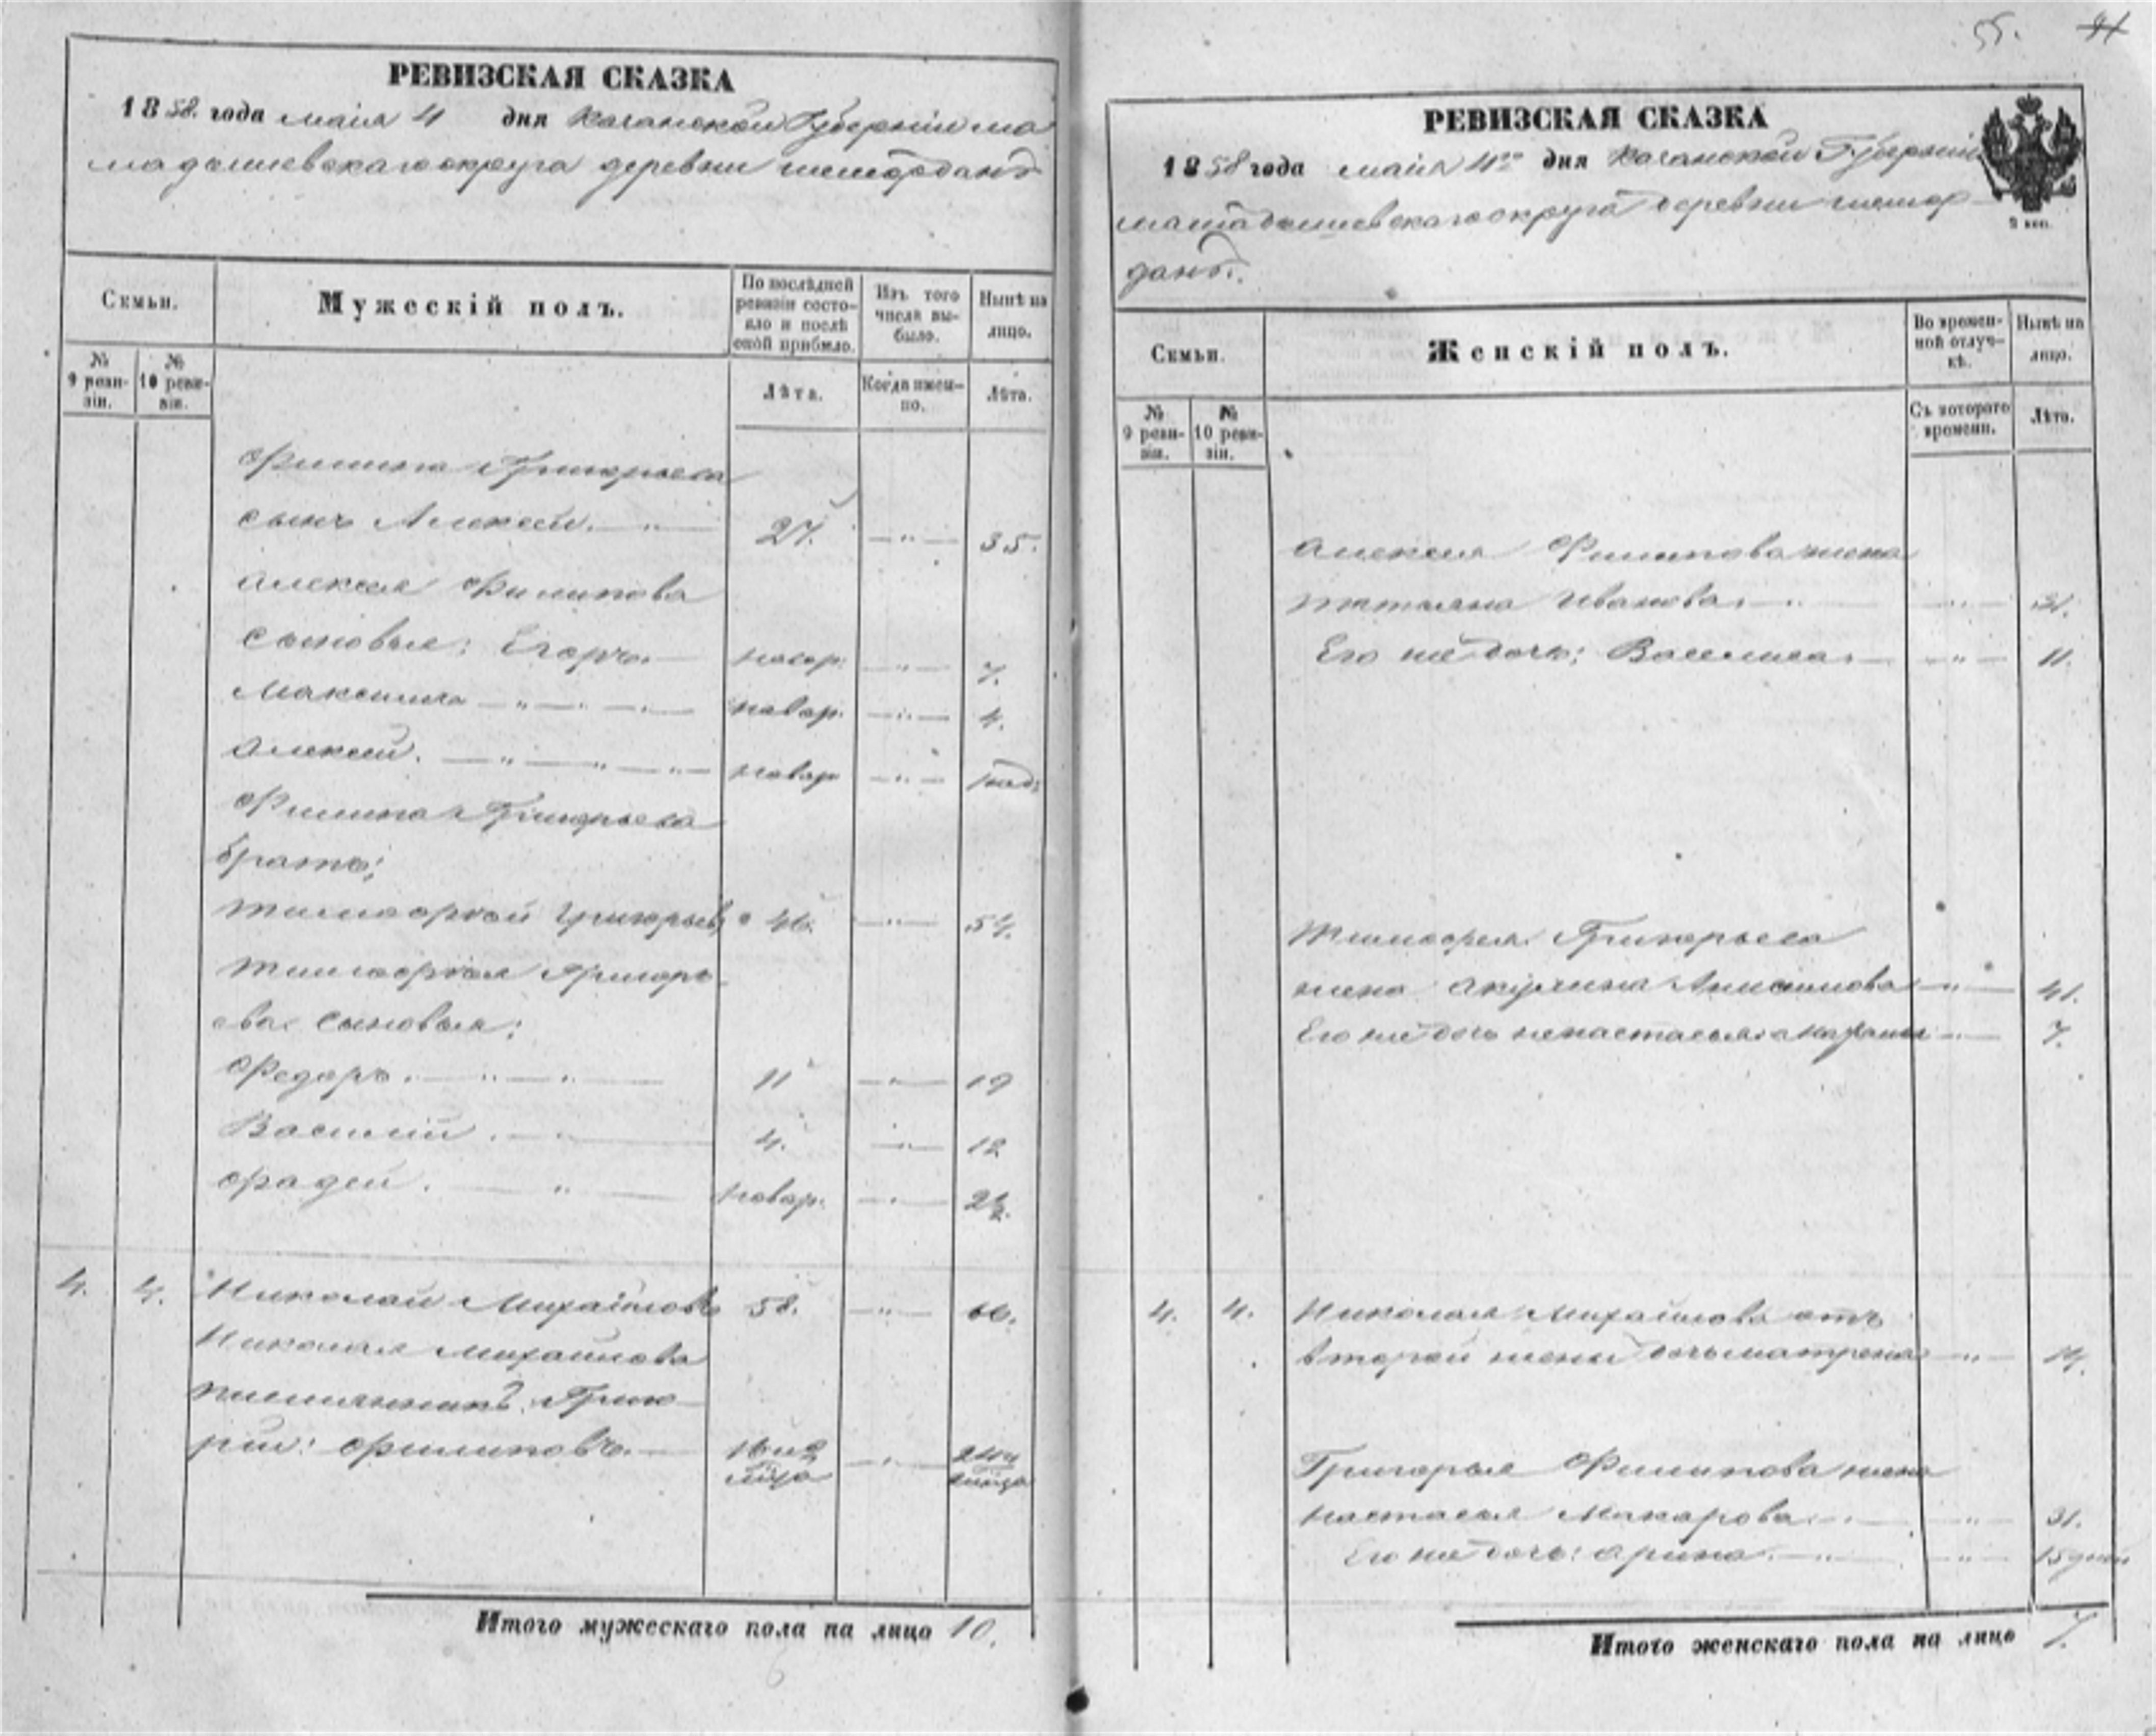 55.
РЕВИЗСКАЯ СКАЗКА
1858. года маія 4 дня Казанской Губерніи ма
мадышевскаго округа деревни шемордан
Семьи.
Мужескій полъ.
По послѣдней ревизіи состояло и послѣ оной прибыло.
Изъ того числа выбыло.
Нынѣ на лицо.
№ 9 ревизіи.
№ 10 ревизіи.
Лѣта.
Когда именно.
Лѣта.
Филипа Григорьева
сынъ Алексей. 27. 35.
Алексея Филипова
сыновья: Егоръ. 7.
Максимъ новор. 4.
Алексей. новор
Филипа Григорьева
братъ;
Тимофей Григорьев 46. 54.
Тимофея Григорь-
ева сыновья:
Федоръ. 11 19
Василий. 4. 12
Фадей. новор. 2½.
4. 4. Николай Михайловъ 58. 66.
Николая Михайлова
племянникъ Григо
рий: Филиповъ.
Итого мужескаго пола на лицо 10.
РЕВИЗСКАЯ СКАЗКА
1858 года маія 4го дня Казанской Губерніи
деревни шемор
данъ.
2 коп.
Семьи.
Женскій полъ.
Во временной отлучкѣ.
Нынѣ на лицо.
№ 9 ревизіи.
№ 10 ревизіи.
Съ котораго времени.
Лѣта.
Алексея Филипова жена
Татьяна Иванова 31.
Его же дочь: Василиса 11.
Тимофея Григорьева
жена Акулина 41.
Его же дочь 7.
4. 4. Николая Михайлова отъ
второй жены дочь матрена
Григорья Филипова жена
Настасья Макарова 31.
Его же дочь: арина. 15 дней
Итого женскаго пола на лицо 7.